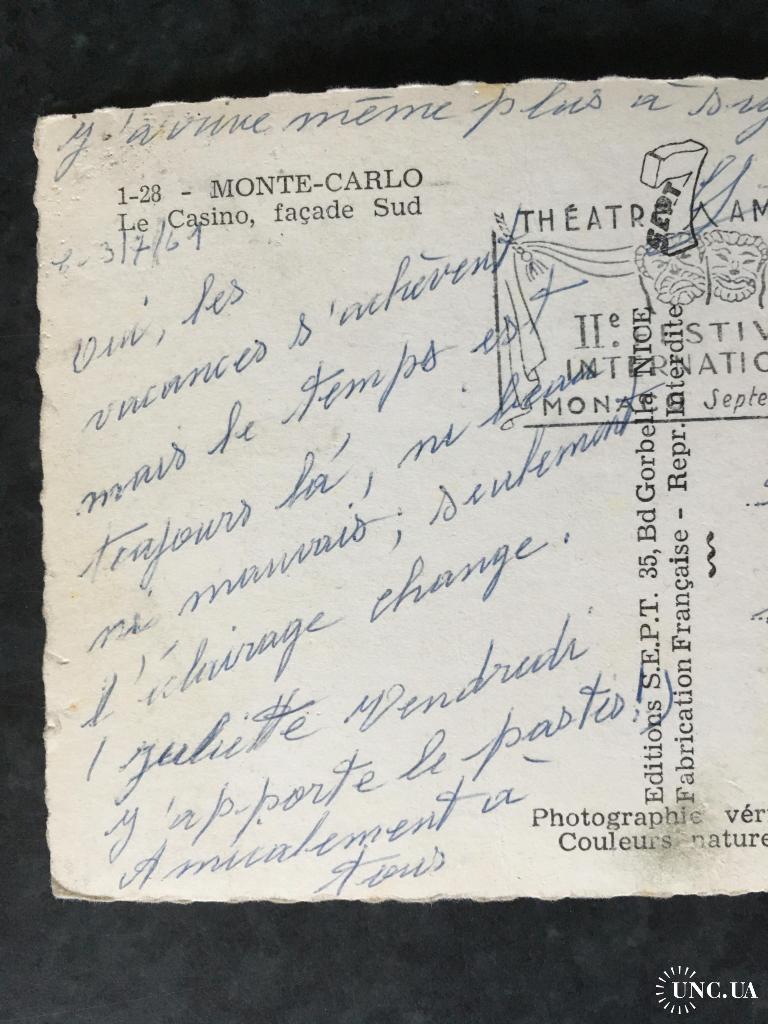 y'arrive même plus à
1-28 - MONTE-CARLO
Le Casino, façade Sud
3/7/61
Oui, les
vacances s'achèvent
mais le temps est
toujours là, ni beau
ni mauvais; seulement
l'éclairage change.
Juliette Vendredi
y'apporte le pastis!
Amicalement à
tous
THÉATR AM
IIe STIV
INTERNATIO
MONA Septe
SEPT
Editions S.E.P.T. 35, Bd Gorbella NICE
Fabrication Française - Repr. Interdite
Photographie vér
Couleurs nature
UNC.UA